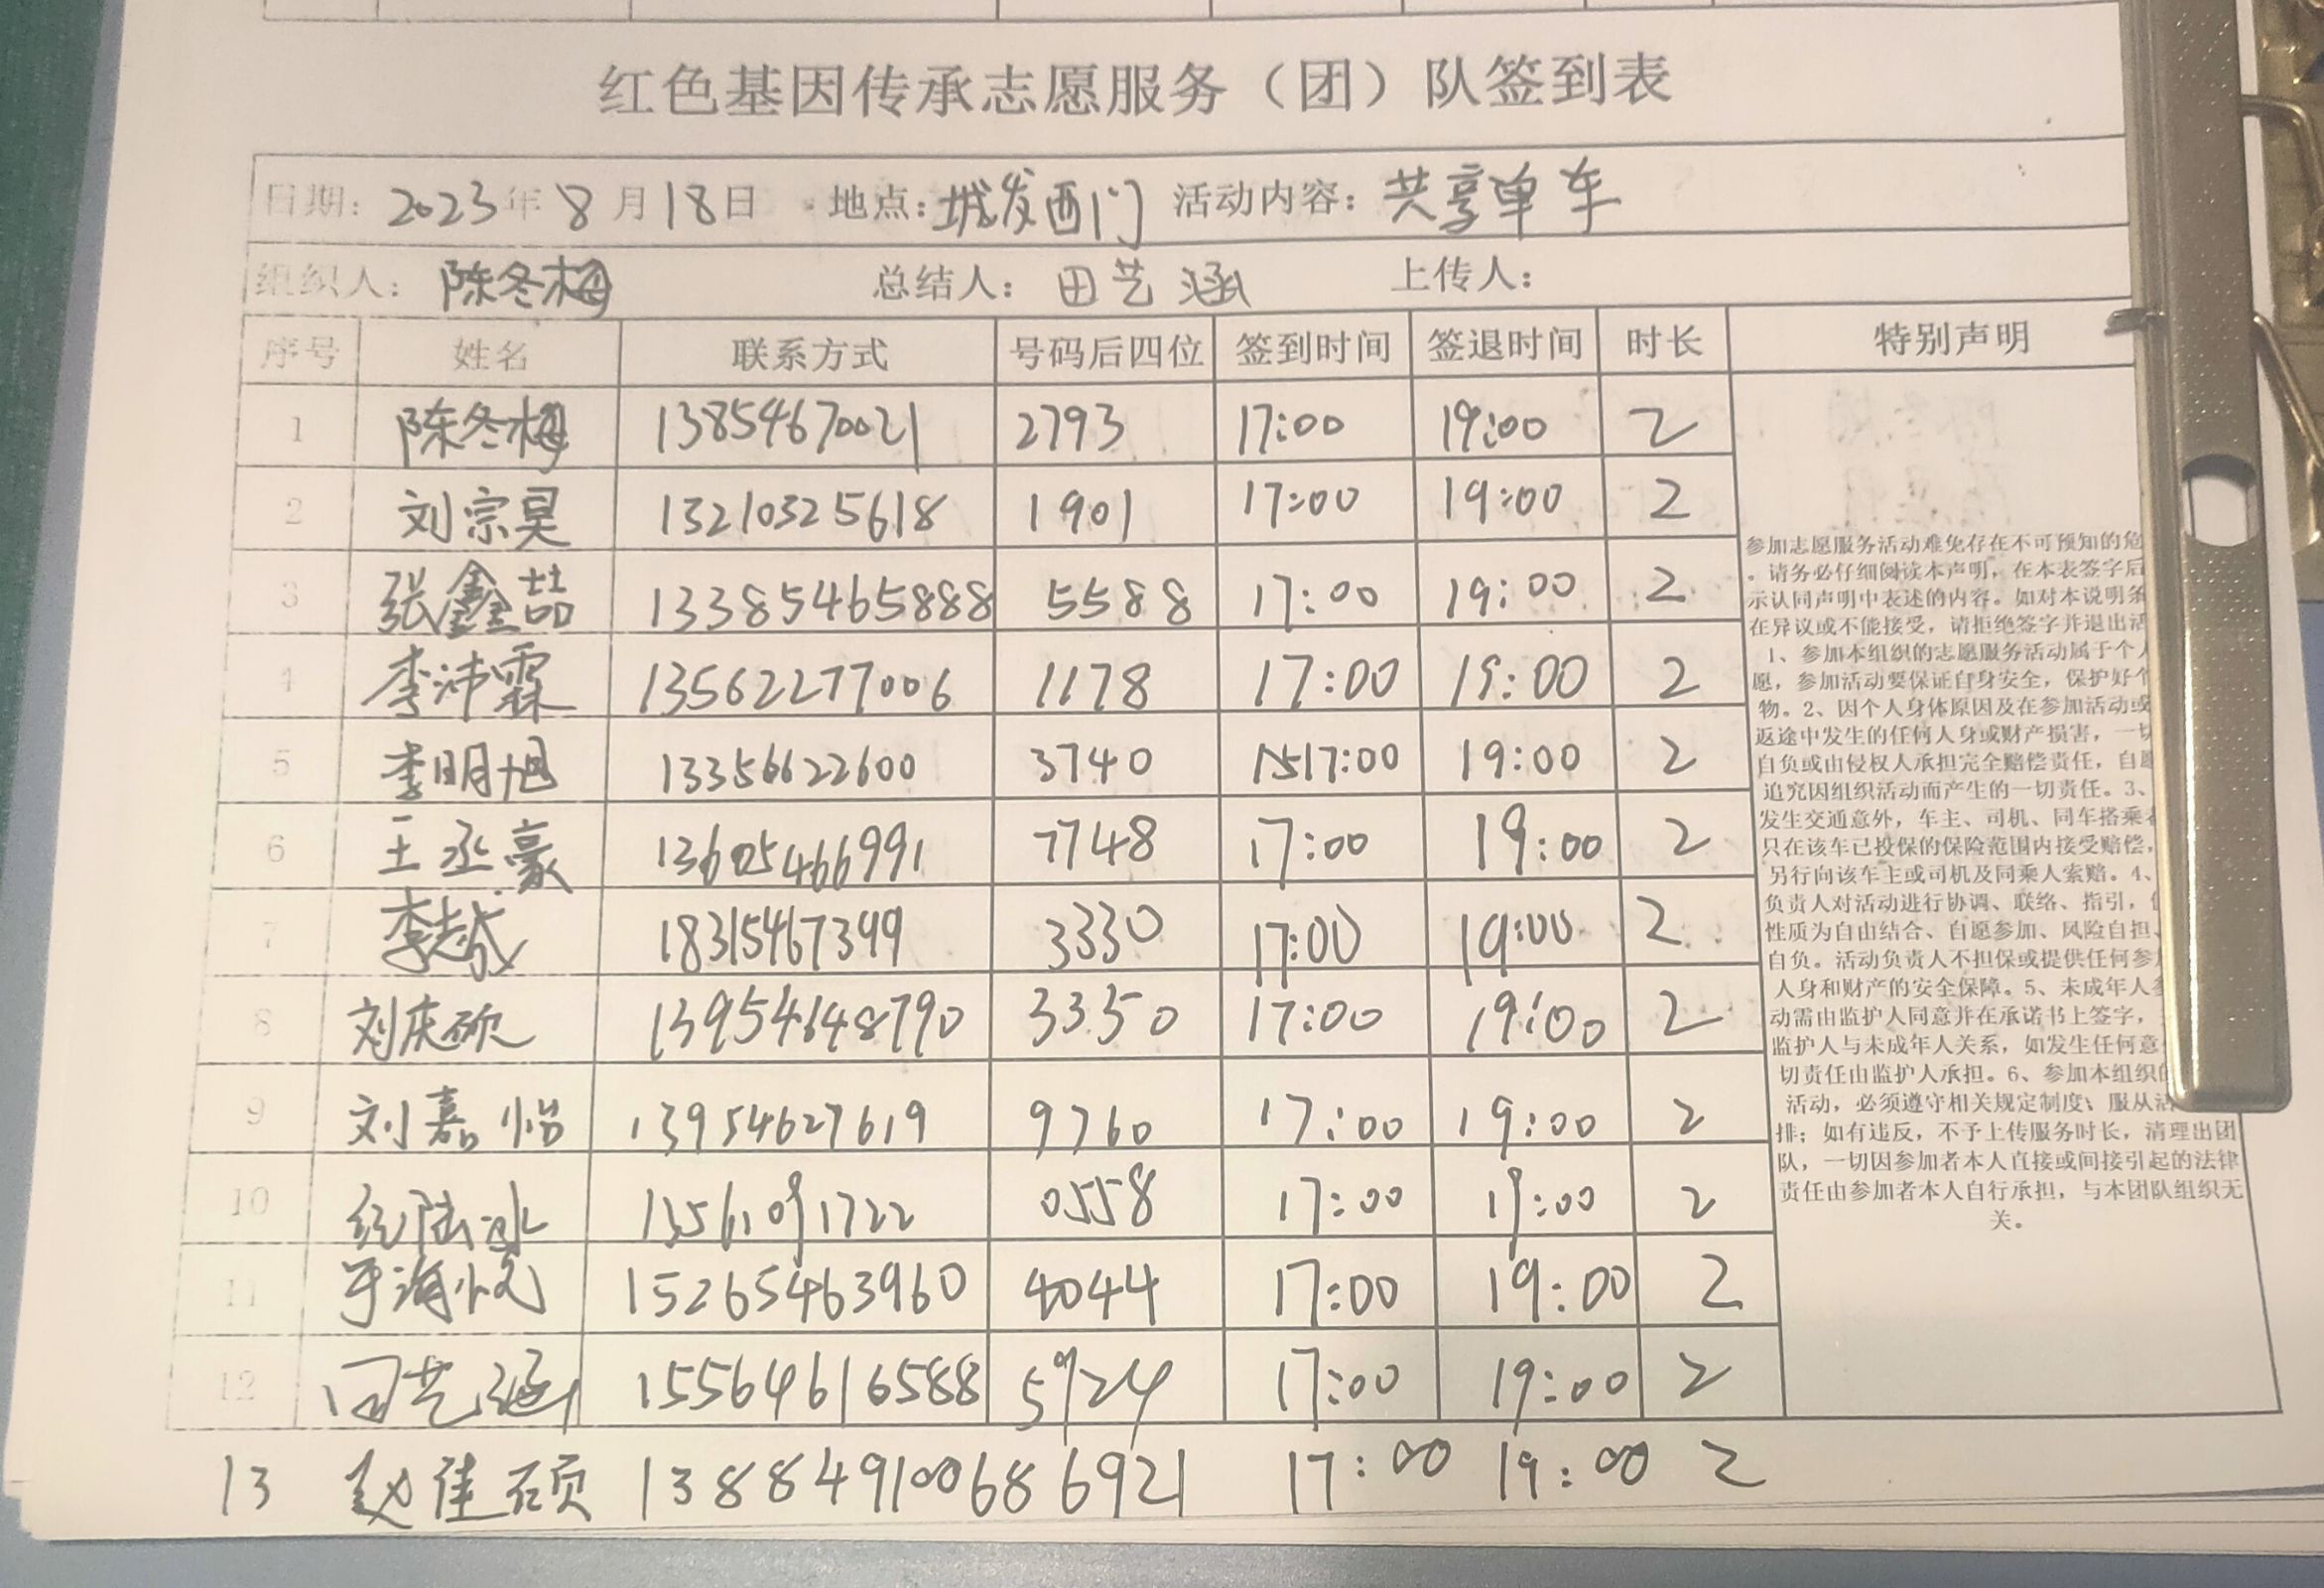 红色基因传承志愿服务（团）队签到表
日期：2023年8月18日 地点：城发西门 活动内容：共享单车
组织人：陈冬梅 总结人：田艺涵 上传人：
序号 姓名 联系方式 号码后四位 签到时间 签退时间 时长 特别声明
1 陈冬梅 13854670021 2793 17:00 19:00 2
2 刘宗昊 13210325618 1901 17:00 19:00 2
3 张鑫喆 13385465888 5588 17:00 19:00 2
4 李沛霖 13562277006 1178 17:00 19:00 2
5 李明旭 13356622600 3740 17:00 19:00 2
6 王丞豪 13605466991 7748 17:00 19:00 2
7 18315467399 3330 17:00 19:00 2
8 刘庆硕 13954648790 3350 17:00 19:00 2
9 刘嘉怡 13954627619 9760 17:00 19:00 2
10 13561091722 0558 17:00 19:00 2
11 15265463960 4044 17:00 19:00 2
12 田艺涵 15564616588 5924 17:00 19:00 2
13 赵佳硕 13884910068 6921 17:00 19:00 2
参加志愿服务活动难免存在不可预知的危
。请务必仔细阅读本声明，在本表签字后
示认同声明中表述的内容。如对本说明条
在异议或不能接受，请拒绝签字并退出活
1、参加本组织的志愿服务活动属于个人
愿，参加活动要保证自身安全，保护好个
物。2、因个人身体原因及在参加活动或
返途中发生的任何人身或财产损害，一切
自负或由侵权人承担完全赔偿责任，自愿
追究因组织活动而产生的一切责任。3、
发生交通意外，车主、司机、同车搭乘者
只在该车已投保的保险范围内接受赔偿，
另行向该车主或司机及同乘人索赔。4、
负责人对活动进行协调、联络、指引，
性质为自由结合、自愿参加、风险自担、
自负。活动负责人不担保或提供任何参
人身和财产的安全保障。5、未成年人参
动需由监护人同意并在承诺书上签字，
监护人与未成年人关系，如发生任何意
切责任由监护人承担。6、参加本组织的
活动，必须遵守相关规定制度；服从活
排；如有违反，不予上传服务时长，清理出团
队，一切因参加者本人直接或间接引起的法律
责任由参加者本人自行承担，与本团队组织无
关。